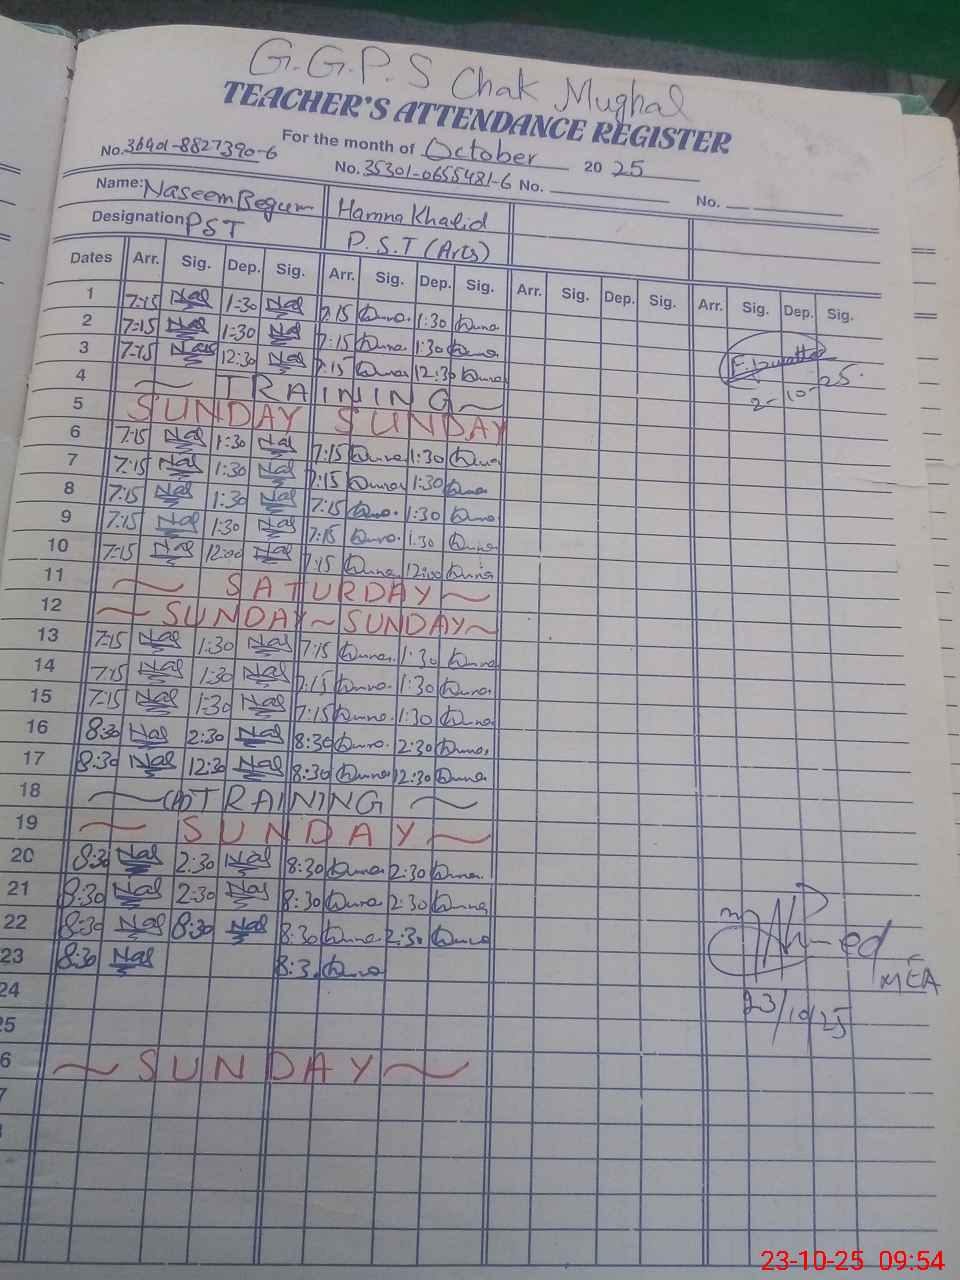 G.G.P.S Chak Mughal
TEACHER'S ATTENDANCE REGISTER
For the month of October 2025
No. 36401-8827390-6 No. 35301-0655481-6 No. No.
Name: Naseem Begum Hamna Khalid
Designation PST P.S.T (Arts)
Dates Arr. Sig. Dep. Sig. Arr. Sig. Dep. Sig. Arr. Sig. Dep. Sig. Arr. Sig. Dep. Sig.
1 7:15 Nas 1:30 Nas 7:15 1:30
2 7:15 Nas 1:30 Nas 7:15 1:30
3 7:15 Nas 12:30 Nas 7:15 12:30
2-10-25.
4 ~ TRAINING ~
5 SUNDAY SUNDAY
6 7:15 Nas 1:30 Nas 7:15 1:30
7 7:15 Nas 1:30 Nas 7:15 1:30
8 7:15 Nas 1:30 Nas 7:15 1:30
9 7:15 Nas 1:30 Nas 7:15 1:30
10 7:15 Nas 12:00 Nas 7:15 12:00
11 ~ SATURDAY ~
12 ~ SUNDAY ~ SUNDAY ~
13 7:15 Nas 1:30 Nas 7:15 1:30
14 7:15 Nas 1:30 Nas 7:15 1:30
15 7:15 Nas 1:30 Nas 7:15 1:30
16 8:30 Nas 2:30 Nas 8:30 2:30
17 8:30 Nas 12:30 Nas 8:30 12:30
18 ~ TRAINING ~
19 ~ SUNDAY ~
20 8:30 Nas 2:30 Nas 8:30 2:30
21 8:30 Nas 2:30 Nas 8:30 2:30
22 8:30 Nas 8:30 Nas 8:30 2:30
Ahmed
23 8:30 Nas 8:3
MEA
24
23/10/25
25
6 ~ SUNDAY ~
7
23-10-25 09:54